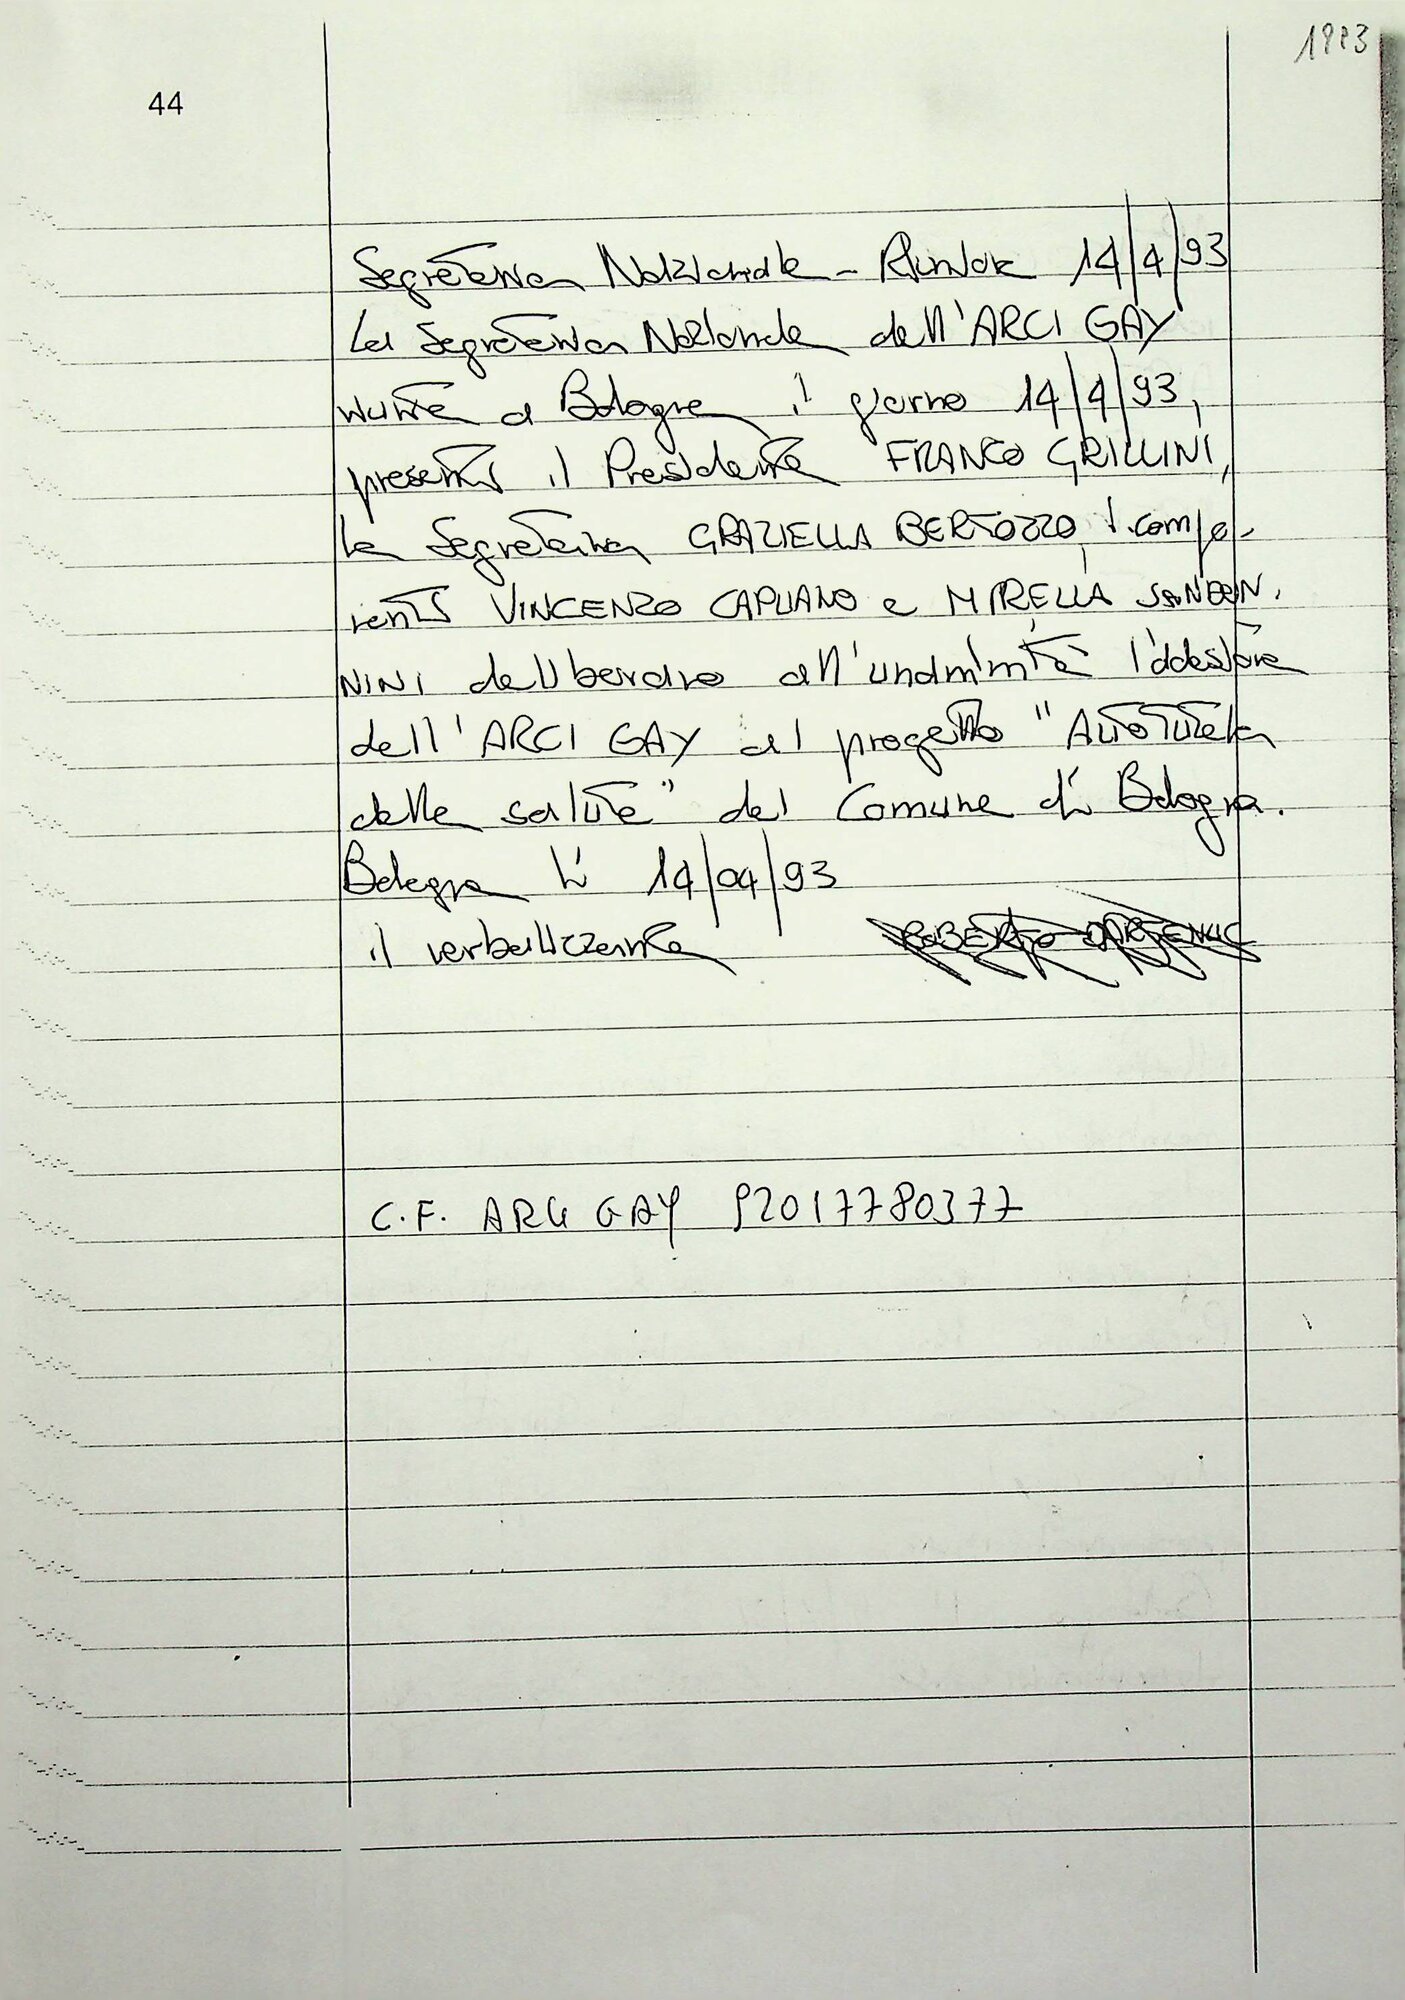 1993
44
Segreteria Nazionale - Riunione 14/4/93
La Segreteria Nazionale dell'ARCI GAY
riunita a Bologna il giorno 14/4/93,
presenti il Presidente FRANCO GRILLINI,
la Segretaria GRAZIELLA BERTOZZO, i compo-
nenti VINCENZO CAPUANO e MIRELLA
NINI deliberano all'unanimità l'adesione
dell'ARCI GAY al progetto "Autotutela
della salute" del Comune di Bologna.
Bologna lì 14/04/93
il verbalizzante ROBERTO
C.F. ARCI GAY 92017780377